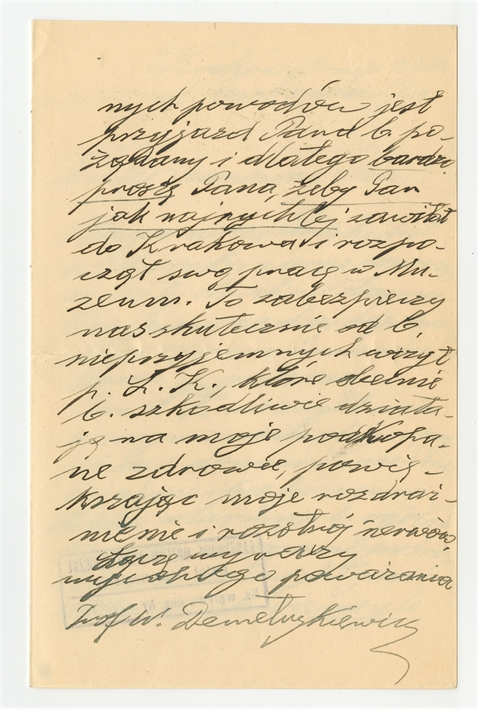 nych powodów jest
przyjazd Pana b. po-
żądany i dlatego bardzo
proszę Pana, żeby Pan
jak najrychlej zawitał
do Krakowa i rozpo-
czął swą pracę w Mu-
zeum. To zabezpieczy
nas skutecznie od b.
nieprzyjemnych wizyt
p. L. K., które obecnie
b. szkodliwie działa-
ją na moje podkopa-
ne zdrowie, powię-
kszając moje rozdraż-
nienie i rozstrój nerwów
Łączę wyrazy
wysokiego poważania
Prof. Wł. Demetrykiewicz